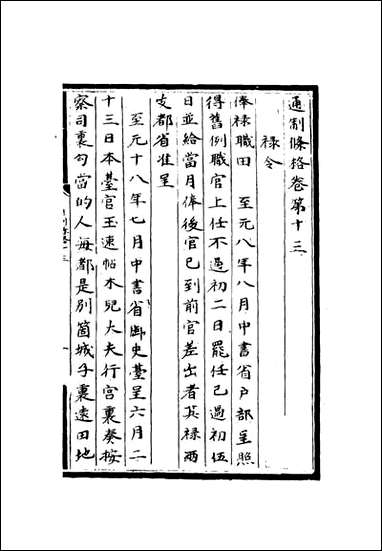 通制條格卷第十三
祿令
俸祿職田 至元八年八月中書省户部呈照
得舊例職官上任不過初二日罷任已過初伍
日並給當月俸後官已到前官差出者其祿兩
支都省准呈
至元十八年七月中書省御史臺呈六月二
十三日本臺官玉速帖木兒大夫行宫裏奏按
察司裏勾當的人每都是別箇城子裏遠田地